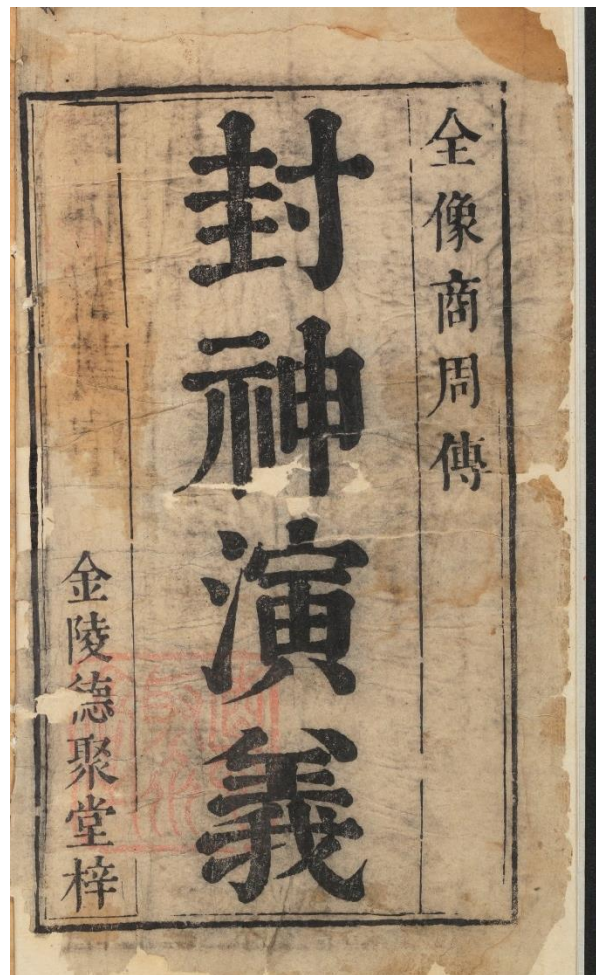 全像商周傳
封神演義
金陵德聚堂梓